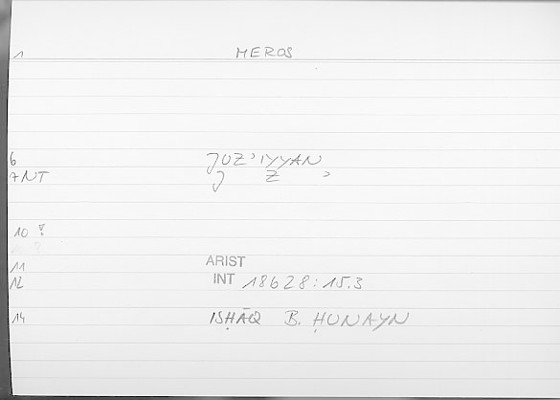 1 MEROS
6 JUZ'IYYAN
7 NT J Z '
10 ?
11 ARIST
12 INT 18628:15.3
14 ISḤĀQ B. ḤUNAYN